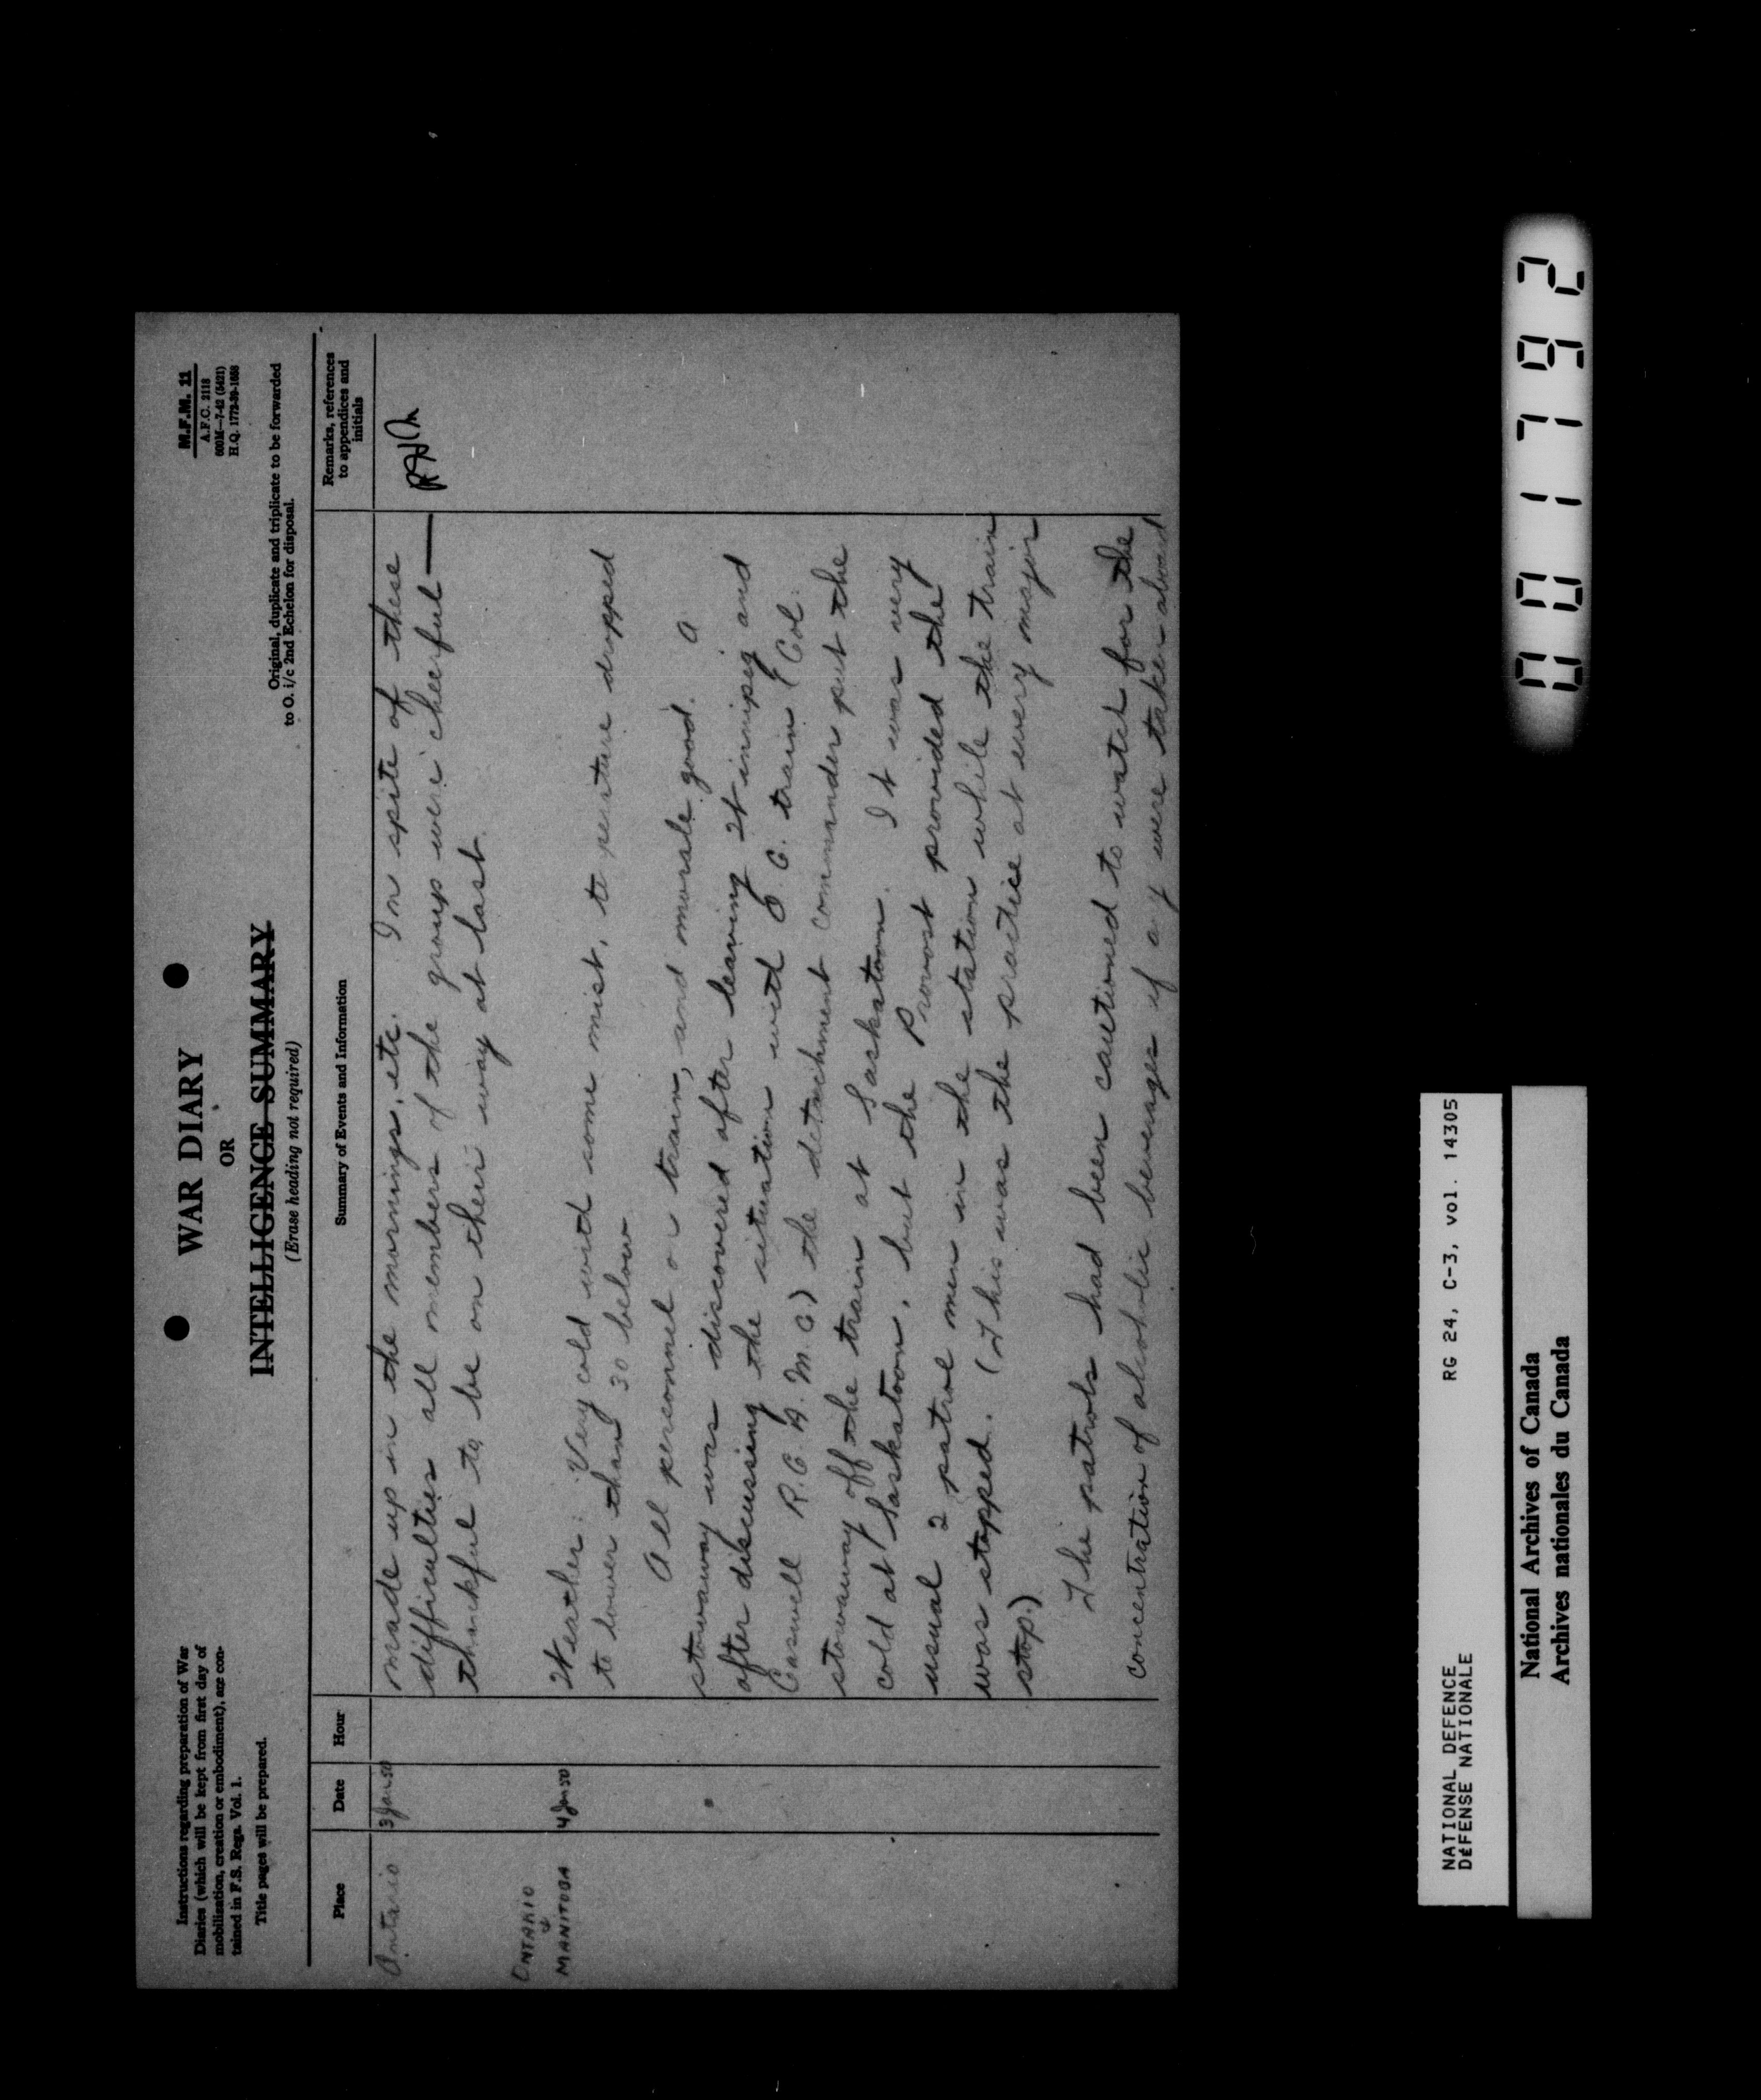 Instructions regarding preparation of War
Diaries (which will be kept from first day of
mobilization, creation or embodiment), are con-
tained in F.S. Regs. Vol. 1.
Title pages will be prepared.
WAR DIARY
OR
INTELLIGENCE SUMMARY
(Erase heading not required)
M.F.M. 11
A.F.C. 2118
600M—7-42 (5421)
H.Q. 1772-39-1658
Original, duplicate and triplicate to be forwarded
to O. i/c 2nd Echelon for disposal.
Place Date Hour Summary of Events and Information Remarks, references
to appendices and
initials
Ontario 3 Jan 50 made up in the mornings, etc. In spite of these
difficulties all members of the group were cheerful —
thankful to be on their way at last.
ONTARIO
&
MANITOBA 4 Jan 50 Weather: Very cold with some mist, temperature dropped
to lower than 30 below.
All personnel on train, and morale good. A
stowaway was discovered after leaving Winnipeg and
after discussing the situation with O.C. train (Col.
Caswell R.C.A.M.C.) the detachment commander put the
stowaway off the train at Saskatoon. It was very
cold at Saskatoon, but the Provost provided the
usual 2 patrol men in the station while the train
was stopped. (This was the practice at every major
stop.)
The patrols had been cautioned to watch for the
concentration of alcoholic beverages if any were taken aboard
NATIONAL DEFENCE
DÉFENSE NATIONALE
RG 24, C-3, vol. 14305
National Archives of Canada
Archives nationales du Canada
001792